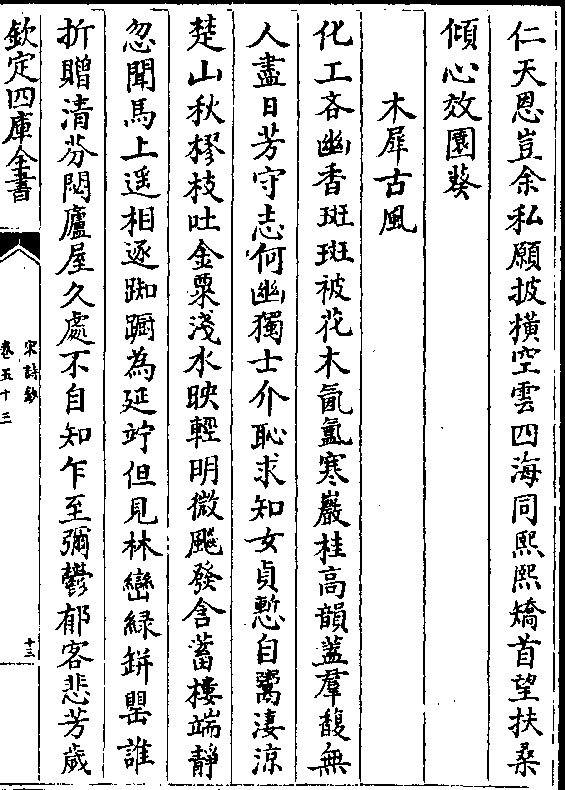 仁天恩豈余私願披橫空雲四海同熙熙矯首望扶桑
傾心效園葵
木犀古風
化工吝幽香斑斑被花木氤氳寒巖桂高韻蓋羣馥無
人盡日芳守志何幽獨士介恥求知女貞慙自鬻淒涼
楚山秋樛枝吐金粟淺水映輕明微颸發含蓄棲端靜
忽聞馬上遥相逐踟躕為延竚但見林巒緑缾罌誰
折贈清芬閟廬屋久處不自知乍至彌鬱郁客悲芳歲
欽定四庫全書
宋詩鈔
卷五十三
十三